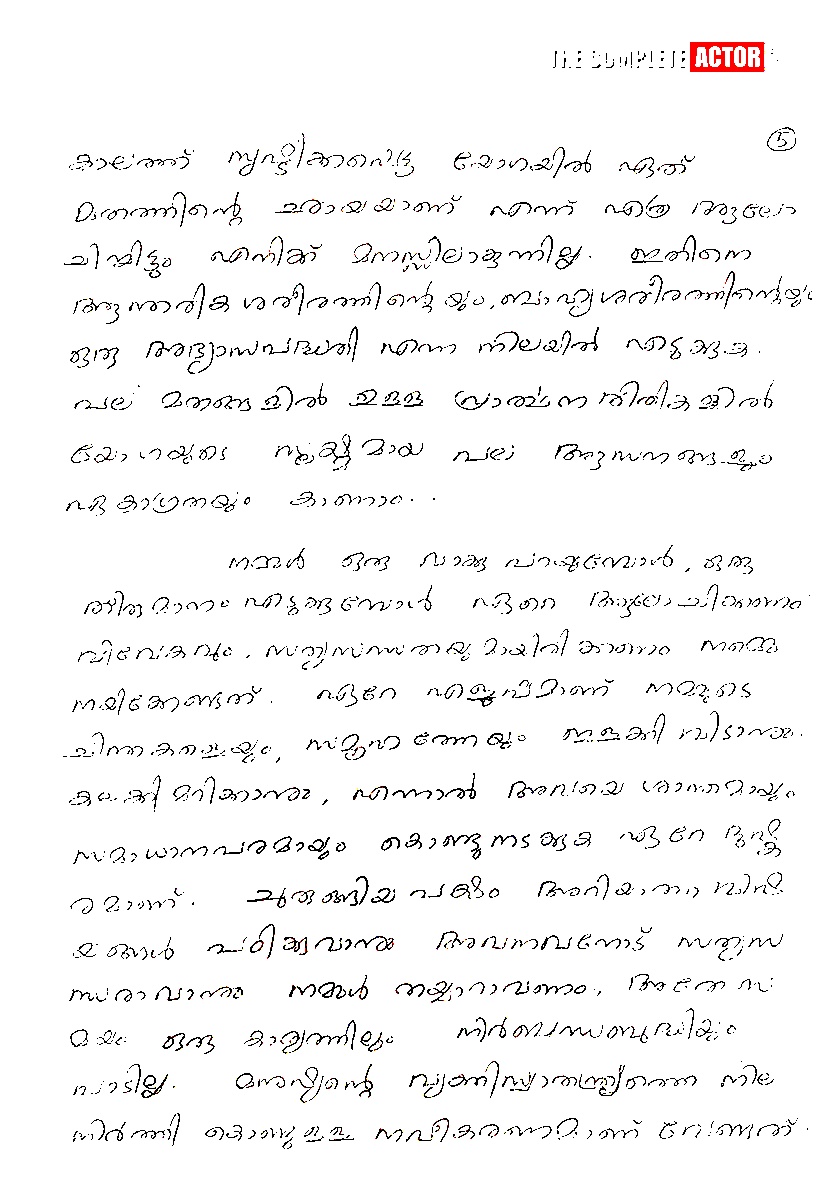 THE COMPLETE ACTOR
5
കാലത്ത് സൃഷ്ടിക്കപ്പെട്ട യോഗയിൽ ഏത്
മതത്തിന്റെ ഛായയാണ് എന്ന് എത്ര ആലോ
ചിച്ചിട്ടും എനിക്ക് മനസ്സിലാകുന്നില്ല. ഇതിനെ
ആന്തരിക ശരീരത്തിന്റെയും, ബാഹ്യശരീരത്തിന്റെയും
ഒരു അഭ്യാസപദ്ധതി എന്ന നിലയിൽ എടുക്കുക.
പല മതങ്ങളിൽ ഉള്ള പ്രാർത്ഥന രീതികളിൽ
യോഗയുടെ സൂക്ഷ്മമായ പല ആസനങ്ങളും
ഏകാഗ്രതയും കാണാം..
നമ്മൾ ഒരു വാക്കു പറയുമ്പോൾ, ഒരു
തീരുമാനം എടുക്കുമ്പോൾ ഏറെ ആലോചിക്കണം
വിവേകവും, സത്യസന്ധതയുമായിരിക്കണം നമ്മെ
നയിക്കേണ്ടത്. ഏറേ എളുപ്പമാണ് നമ്മുടെ
ചിന്തകളെയും, സമൂഹത്തേയും ഇളക്കി വിടാനും
കലക്കി മറിക്കാനും, എന്നാൽ അവയെ ശാന്തമായും
സമാധാനപരമായും കൊണ്ടുനടക്കുക ഏറേ ദുഷ്ക
രമാണ്. ചുരുങ്ങിയപക്ഷം അറിയാത്ത വിഷ
യങ്ങൾ പഠിക്കുവാനും അവനവനോട് സത്യസ
ന്ധരാവാനും നമ്മൾ തയ്യാറാവണം, അതേ സ
മയം ഒരു കാര്യത്തിലും നിർബന്ധബുദ്ധിയും
പാടില്ല. മനുഷ്യന്റെ വ്യക്തിസ്വാതന്ത്ര്യത്തെ നില
നിർത്തി കൊണ്ടുള്ള നവീകരണമാണ് വേണ്ടത്.